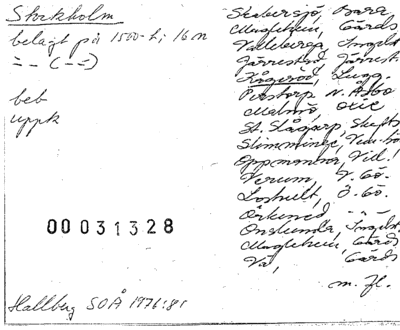 Stockholm
belagt på 1500-t; 16 m
=- (--)
beb
uppk
00031328
Hallberg SOÅ 1976:81
Skabersjö, Bara
Maglehem, Gärds
Valleberga, Ingelst
Järrestad, Järrest
Kågeröd, Lugg.
Perstorp N. Åsbo
Malmö, Oxie
St. Slågarp, Skytts
Slimminge, Vem
Oppmanna, Vill.
Verum, V. Gö.
Loshult, Ö. Gö.
Örkened -"-
Onslunda, Ingelst
Maglehem, Gärds
Vä, Gärds
m. fl.